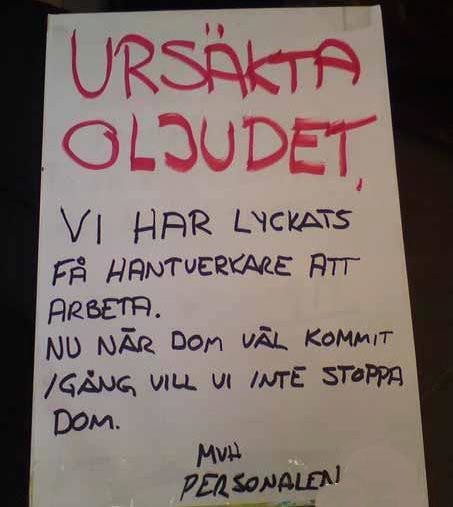 URSÄKTA
OLJUDET,
VI HAR LYCKATS
FÅ HANTVERKARE ATT
ARBETA.
NU NÄR DOM VÄL KOMMIT
IGÅNG VILL VI INTE STOPPA
DOM.
MVH
PERSONALEN